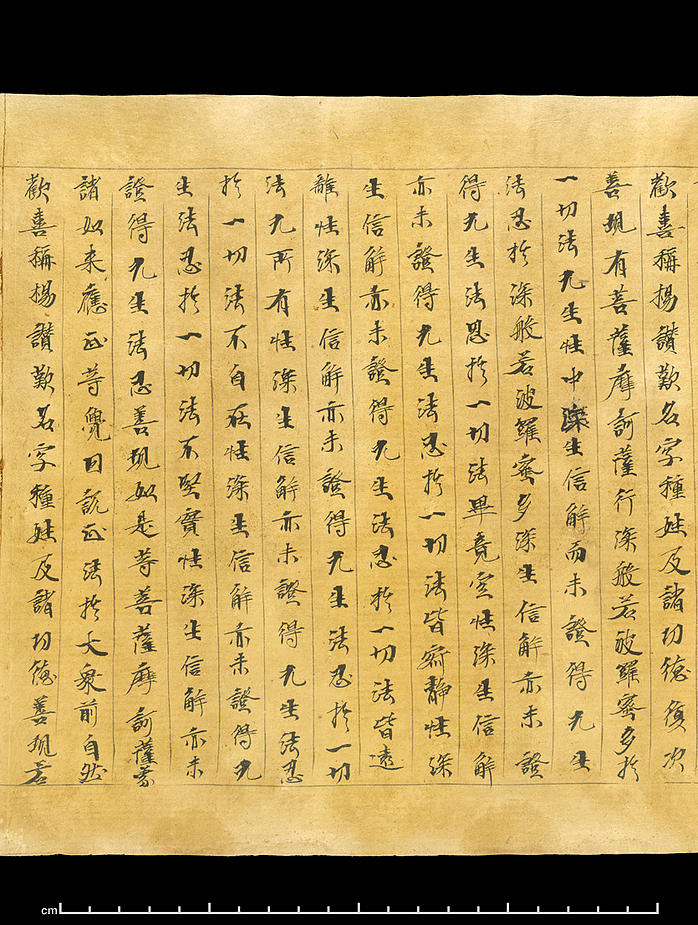 歡喜稱揚讚歎名字種姓及諸功德復次
善現有菩薩摩訶薩行深般若波羅蜜多於
一切法无生性中深生信解而未證得无生
法忍於深般若波羅蜜多深生信解亦未證
得无生法忍於一切法畢竟空性深生信解
亦未證得无生法忍於一切法皆寂靜性深
生信解亦未證得无生法忍於一切法皆遠
離性深生信解亦未證得无生法忍於一切
法无所有性深生信解亦未證得无生法忍
於一切法不自在性深生信解亦未證得无
生法忍於一切法不堅實性深生信解亦未
證得无生法忍善現如是等菩薩摩訶薩蒙
諸如來應正等覺因說正法於大衆前自然
歡喜稱揚讚歎名字種姓及諸功德善現若
cm